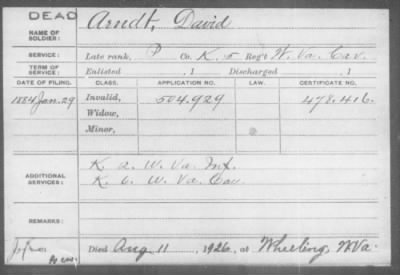 DEAD
NAME OF SOLDIER: Arndt, David
SERVICE: Late rank, P Co. K, 5 Reg't W. Va. Cav.
TERM OF SERVICE: Enlisted , 1 Discharged , 1
DATE OF FILING. CLASS. APPLICATION NO. LAW. CERTIFICATE NO.
1884 Jan. 29 Invalid, 504.929 478.416.
Widow,
Minor,
ADDITIONAL SERVICES: K 2. W. Va. Inf.
K. 6. W. Va. Cav.
REMARKS:
Died Aug 11, 1926, at Wheeling W Va.